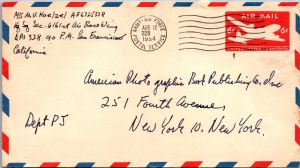 M/S M.V. Koelzel AF6725538
Hq Sq Sec. 6161st Air Base Wing
APO 328 90 P.M. San Francisco
California
ARMY-AIR FORCE
POSTAL SERVICE
AUG 12
1954
328
AIR MAIL
6¢ 6¢
UNITED STATES OF AMERICA
American Photographic Book Publishing Co. Inc
251 Fourth Avenue,
Dept PJ New York 10. New York.